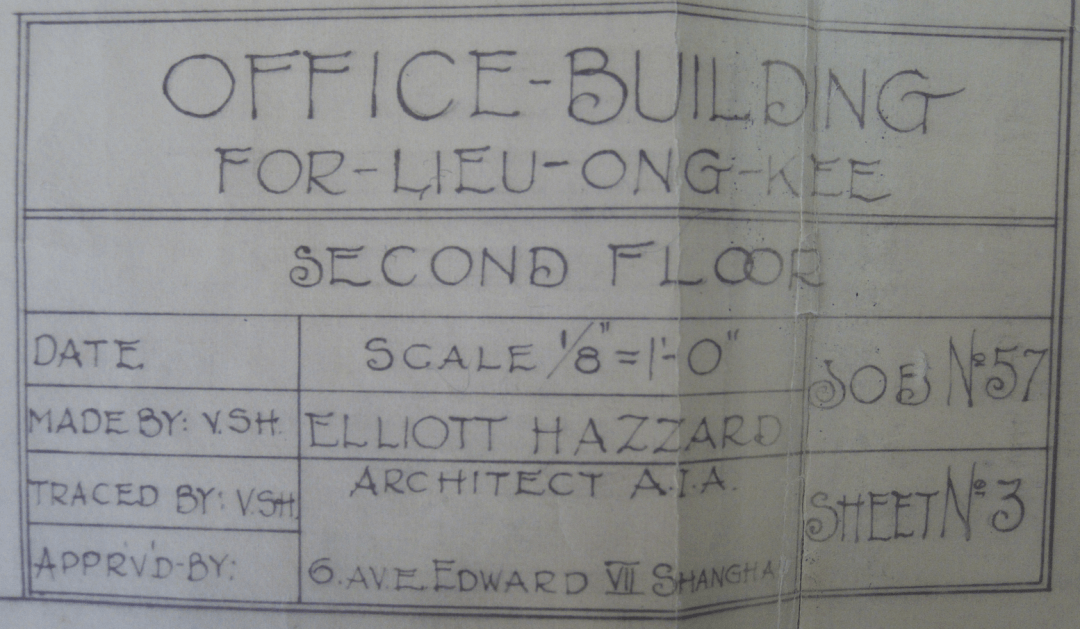 OFFICE-BUILDING
FOR-LIEU-ONG-KEE
SECOND FLOOR
DATE
SCALE 1/8"=1'-0"
JOB Nº57
MADE BY: V.SH.
ELLIOTT HAZZARD
TRACED BY: V.SH.
ARCHITECT A.I.A.
SHEET Nº3
APPRV'D-BY:
6.AVE.EDWARD VII SHANGHA